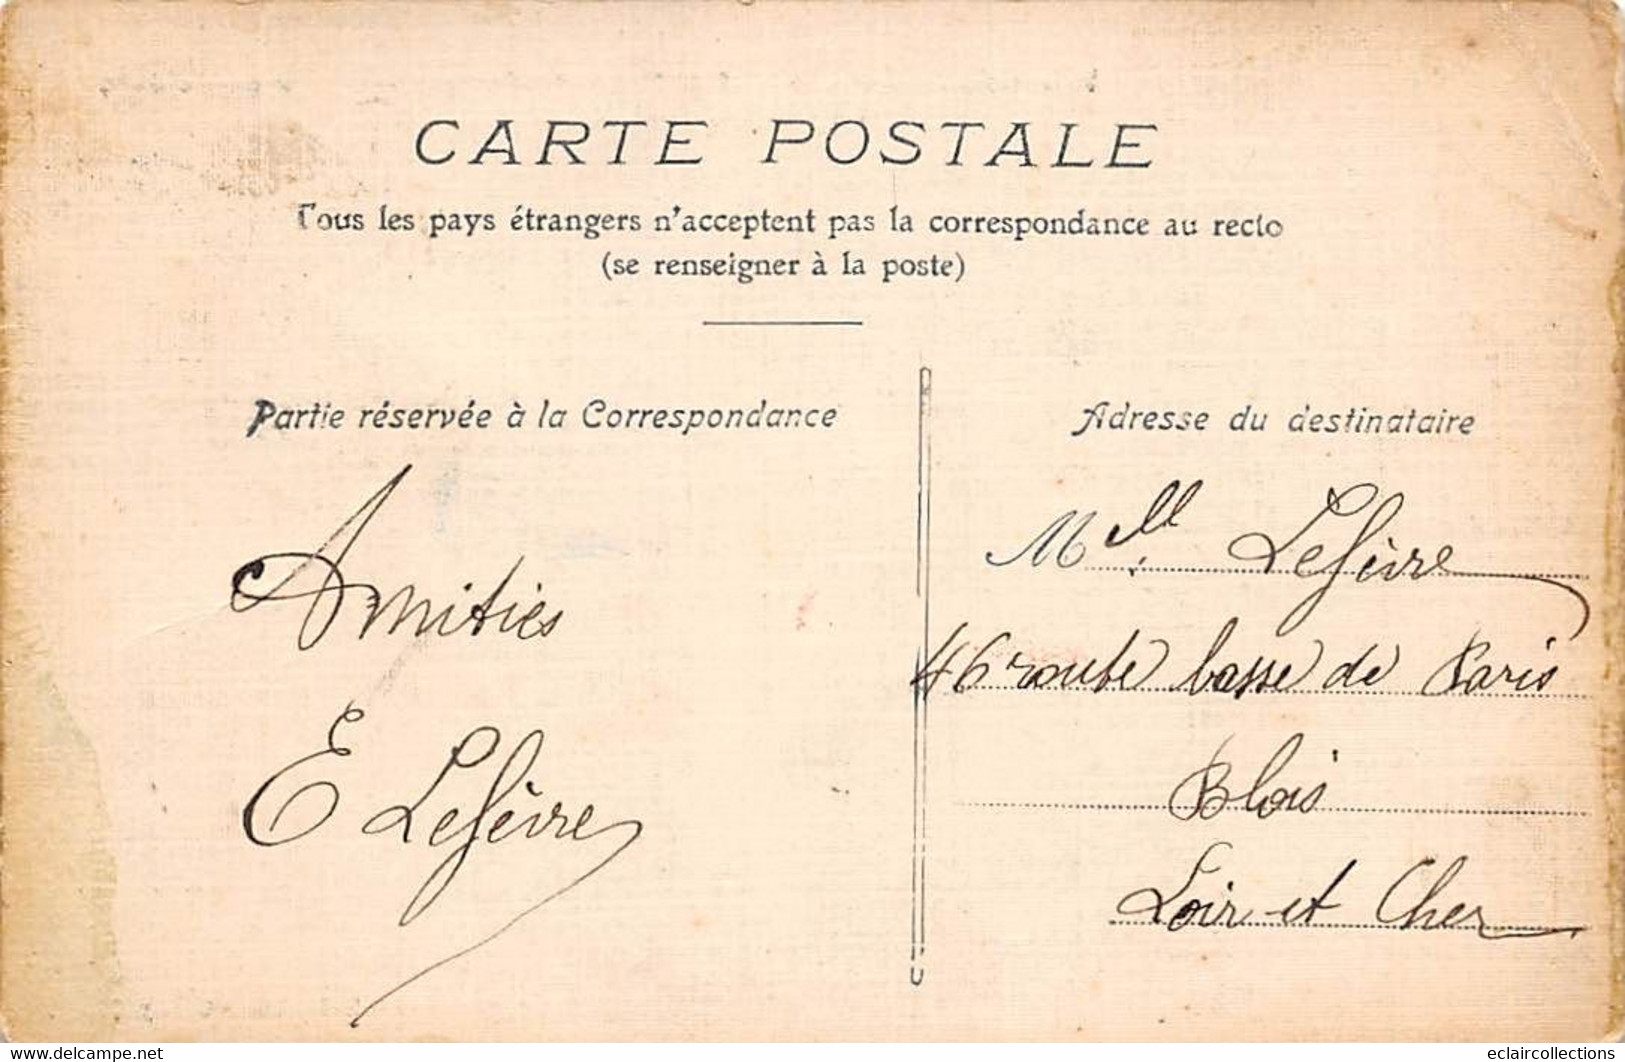 CARTE POSTALE
Tous les pays étrangers n'acceptent pas la correspondance au recto
(se renseigner à la poste)
Partie réservée à la Correspondance
Amitiés
E Lefèvre
Adresse du destinataire
Mlle Lefèvre
46 route basse de Paris
Blois
Loir et Cher
www.delcampe.net
eclaircollections